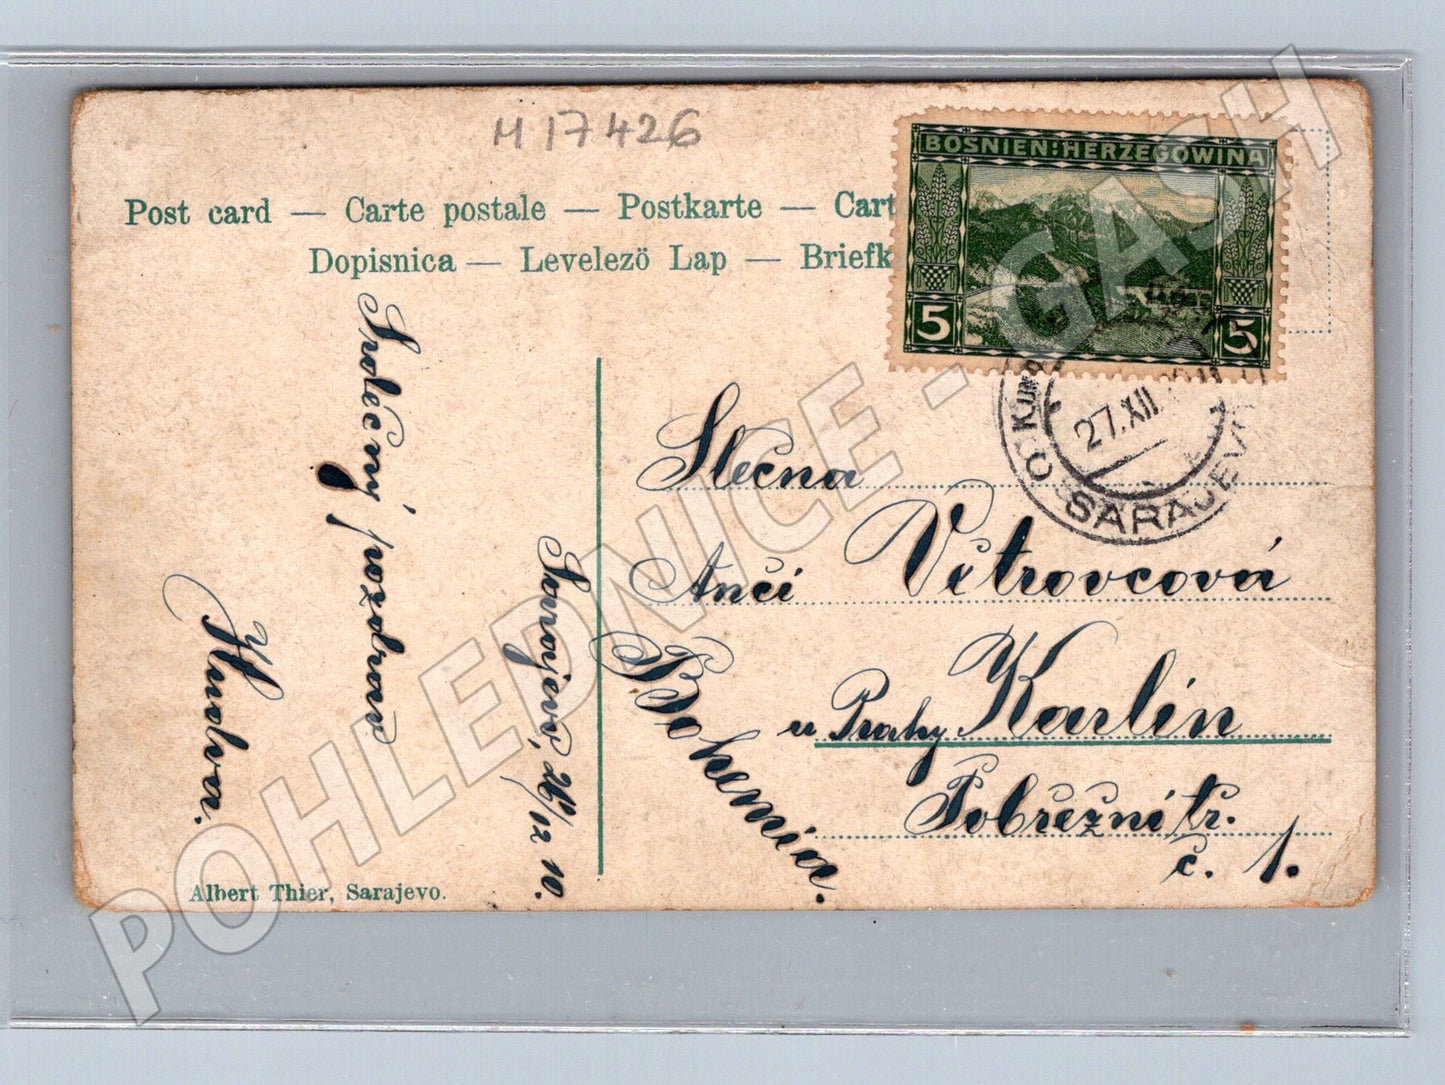 M 17426
Post card — Carte postale — Postkarte — Cart
Dopisnica — Levelezö Lap — Briefk
BOSNIEN:HERZEGOWINA
5 5
27.XII.
SARAJEVO
Srdečný pozdrav
Sarajevo, 26/12 10.
Slečna
Anči Větrovcová
u Prahy Karlín
Pobřežní tř.
č. 1.
Bohemia.
Albert Thier, Sarajevo.
POHLEDNICE - GASH